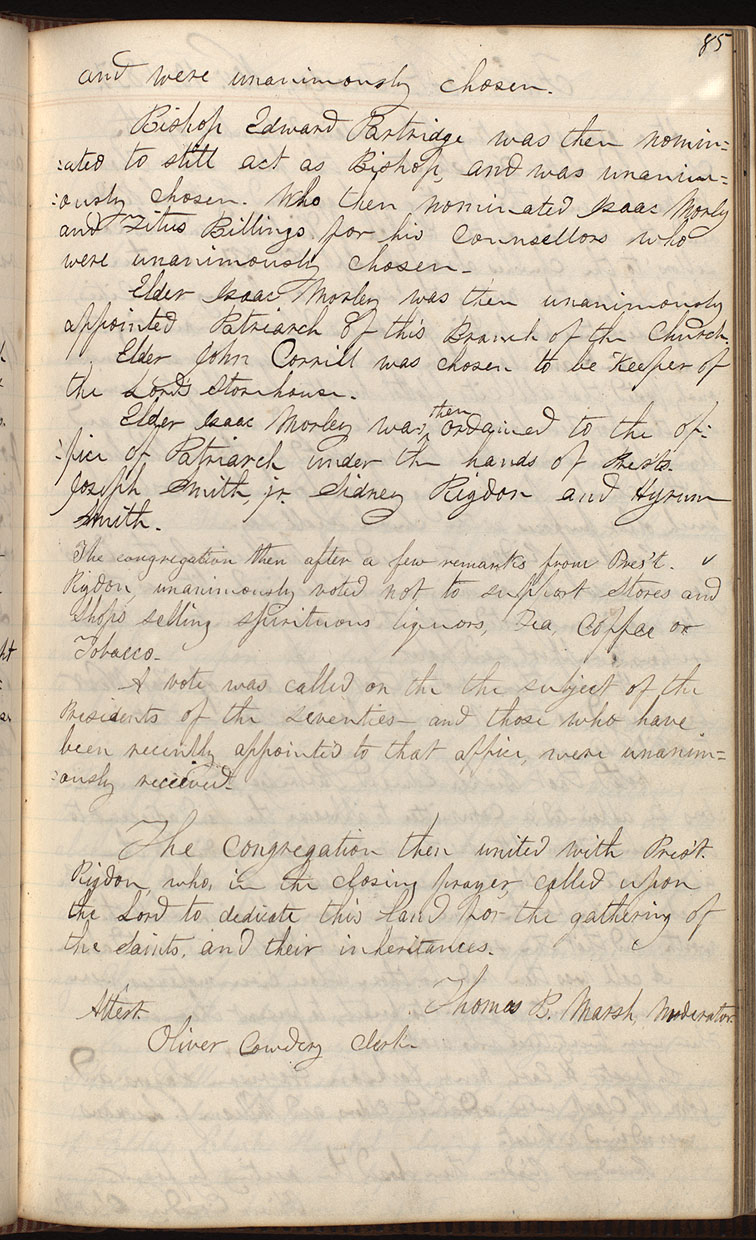 85
and were unanimously chosen.
Bishop Edward Partridge was then nomin=
=ated to still act as Bishop, and was unanim=
=ously chosen. Who then nominated Isaac Morley
and Titus Billings for his Counsellors who
were unanimously chosen—
Elder Isaac Morley was then unanimously
appointed Patriarch of this Branch of the Church.
Elder John Corrill was chosen to be Keeper of
the Lord's Storehouse.
Elder Isaac Morley was, then ordained to the of=
=fice of Patriarch under the hands of Prests.
Joseph Smith, jr. Sidney Rigdon and Hyrum
Smith.
The congregation then after a few remarks from Pres't.
Rigdon, unanimously voted not to support Stores and
Shops selling spirituous liquors, Tea, Coffee or
Tobacco.
A vote was called on the the subject of the
Presidents of the Seventies— and those who have
been recently appointed to that office, were unanim=
=ously received.
The congregation then united with Pres't.
Rigdon, who, in the closing prayer called upon
the Lord to dedicate this land for the gathering of
the Saints, and their inheritances.
Thomas B. Marsh, Moderator
Attest
Oliver Cowdery Clerk